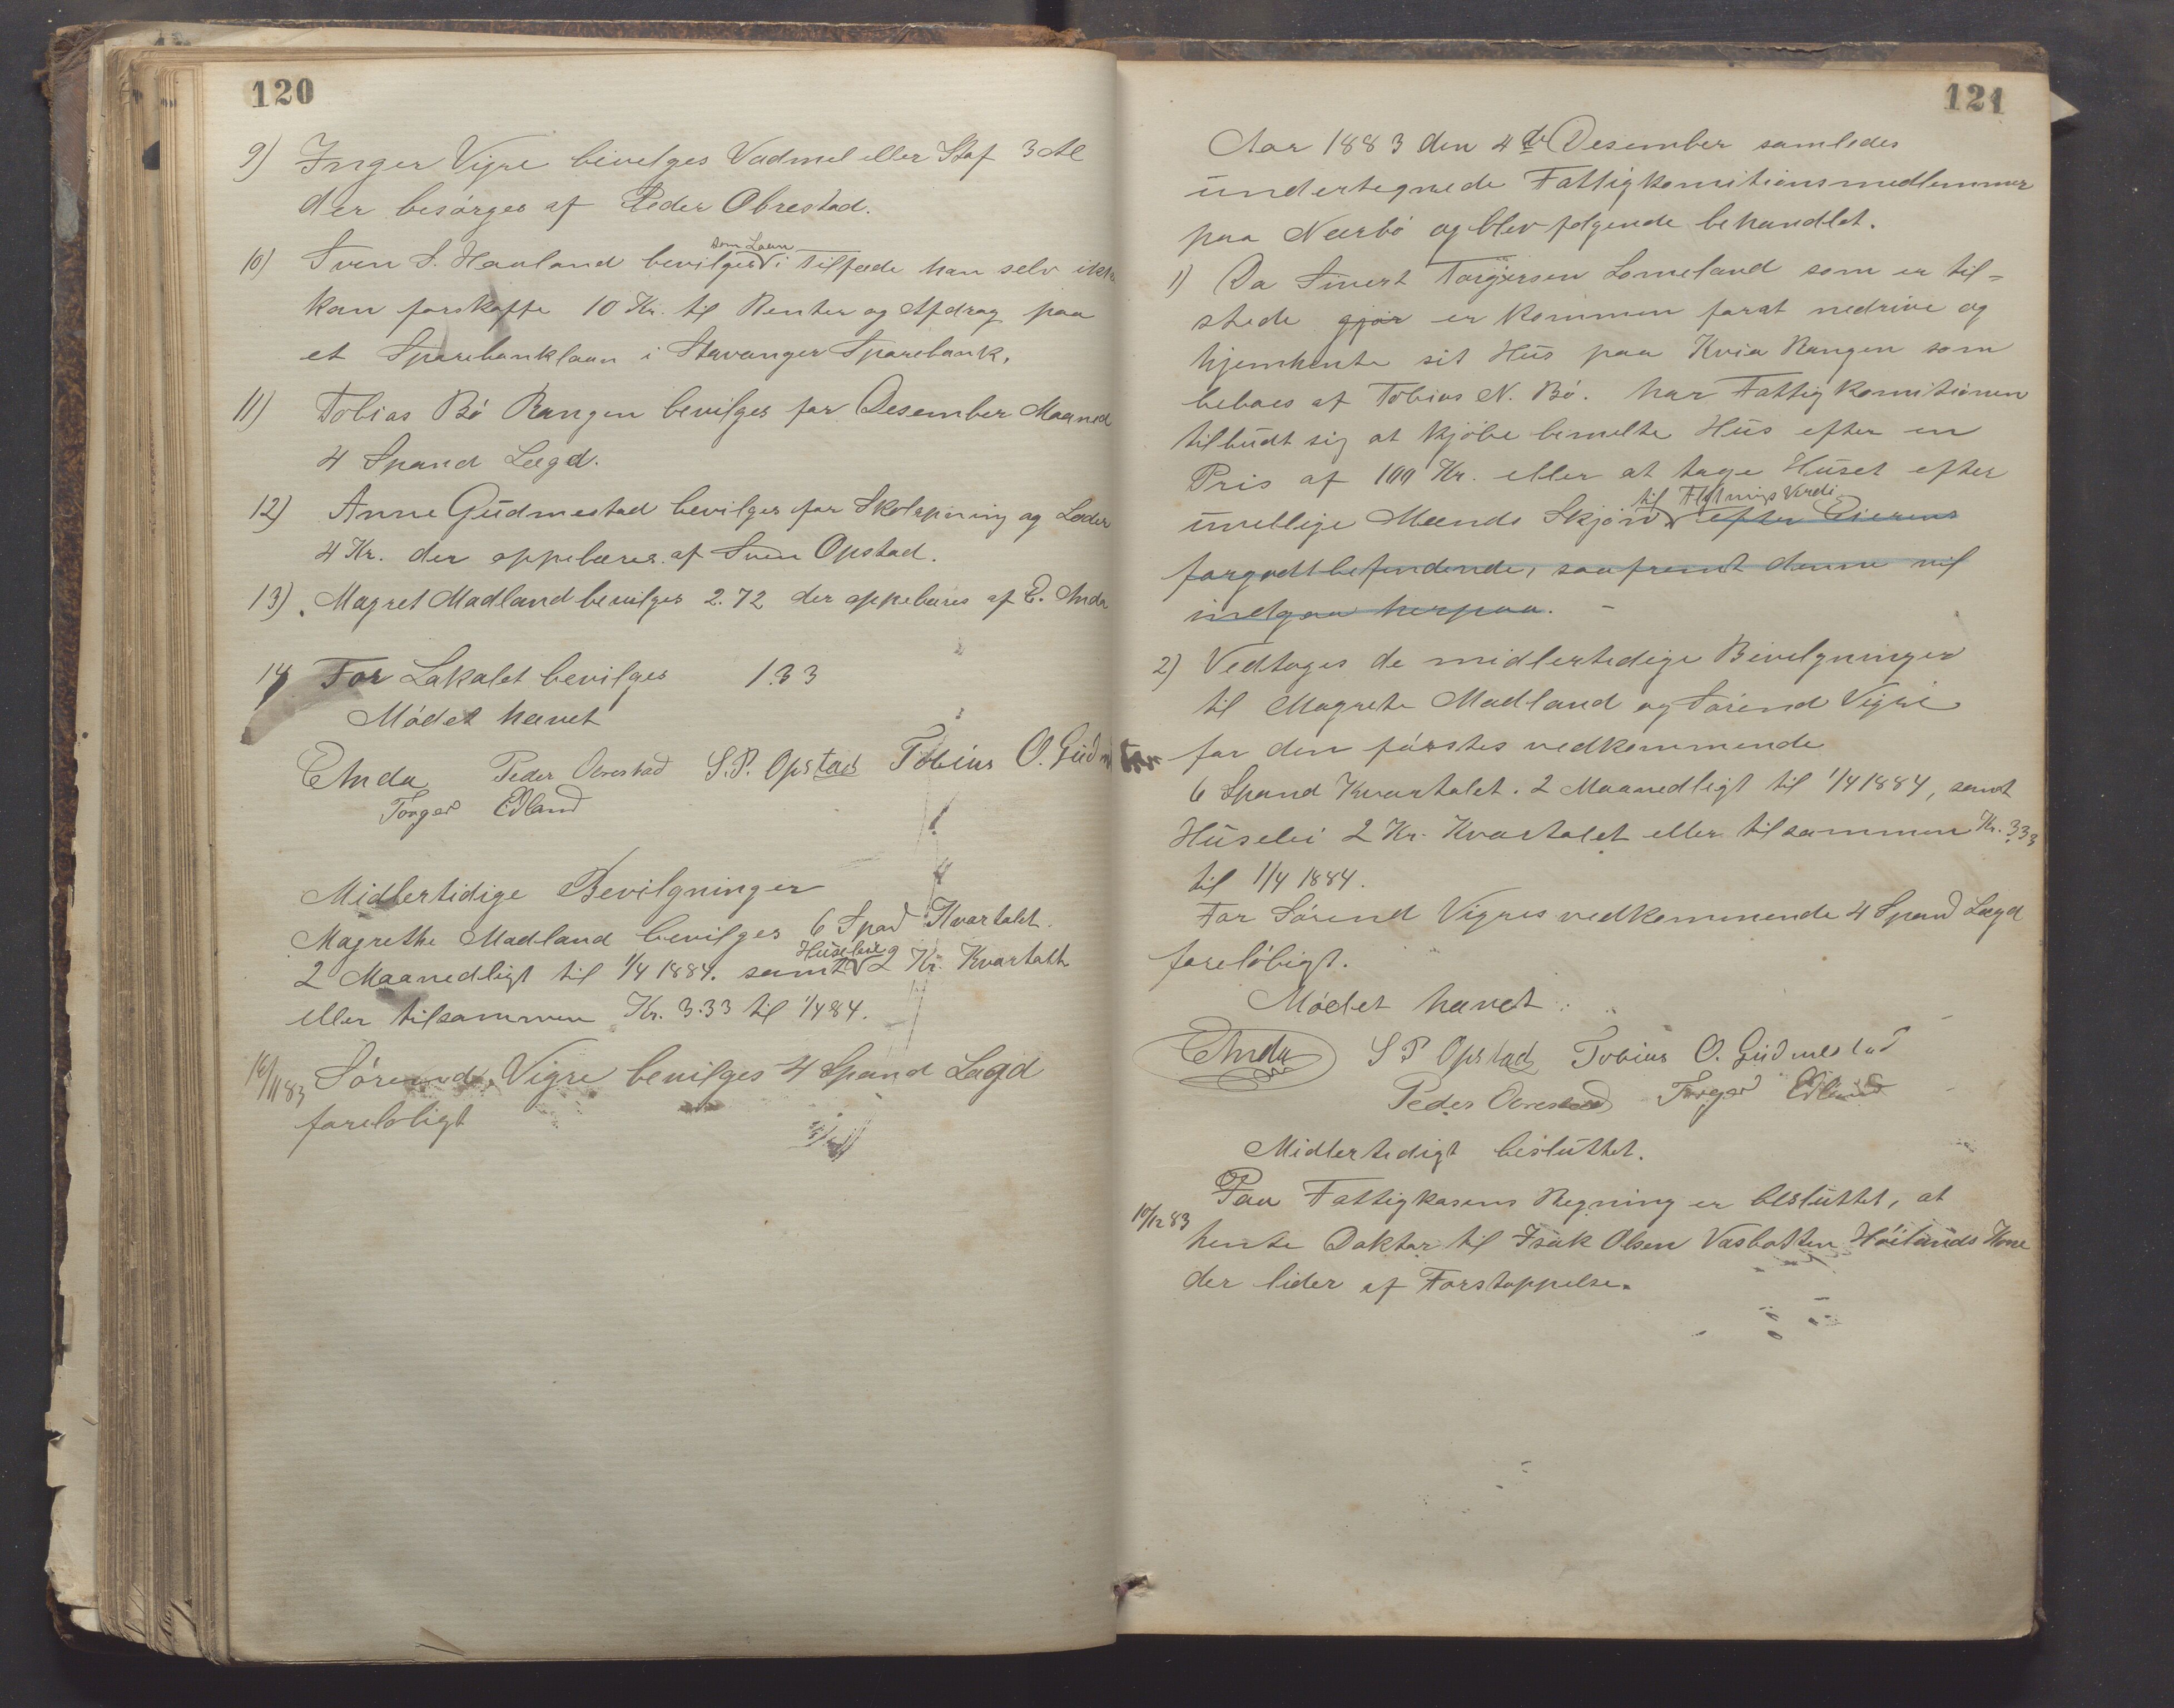 120
9) Inger Vigre bevilges Vadmel eller Stof 3 Al
der besörges af Peder Obrestad.
som Laan
10) Sven S. Hauland bevilges i tilfæde han selv ikke
kan forskaffe 10 Kr. til Renter og Afdrag paa
et Sparebanklaan i Stavanger Sparebank.
11) Tobias Bö Rangen bevilges for Desember Maaned
4 Spand Lægd.
12) Anne Gudmestad bevilges for Skolepning og Læder
4 Kr. der oppebæres af Sven Opstad.
13) Magret Madland bevilges 2.72 der oppebæres af E. Anda
14 For Lokalet bevilges 1.33
Mödet hævet
E Anda Peder Obrestad S. P. Opstad Tobius O. Gudmestad
Torger Edland
Midlertidige Bevilgninger
Magrethe Madland bevilges 6 Spad Kvartalet.
Huseleie
2 Maanedligt til 1/4 1884. samt 2 Kr. Kvartalt
eller tilsammen Kr. 3.33 til 1/4 84.
16/11 83 Sörend Vigre bevilges 4 Spand Lægd
foreløbigt
121
Aar 1883 den 4de Desember samledes
undertegnede Fattigkomitionsmedlemmer
paa Nærbö og blev følgende behandlet.
1) Da Sivert Torgersen Lomeland som er til=
stede gjør er kommen forat nedrive og
hjemhente sit Hus paa Kvia Rangen som
beboes af Tobius N. Bö. har Fattigkomitionen
tilbudt sig at kjöbe bemelte Hus efter en
Pris af 100 Kr. eller at tage Huset efter
til Flytnings Verdi
uvellige Mænds Skjön efter Eierens
forgodtbefindende, saafremt denne vil
indgaa herpaa. -
2) Vedtoges de midlertedige Bevilgninger
til Magrete Madland og Sörend Vigre
for den förstes vedkommende
6 Spand Kvartalet. 2 Maanedligt til 1/4 1884, samt
Huselei 2 Kr. Kvartalet eller tilsammen Kr. 3.33
til 1/4 1884.
For Sörend Vigres vedkommende 4 Spand Lægd
forelöbigt.
Mödet hævet.
E Anda S P Opstad Tobius O. Gudmestad
Peder Obrestad Torger Edland
Midlertedigt besluttet.
Paa Fattigkasens Regning er besluttet, at
10/12 83
hente Doktor til Isak Olsen Vasbotten Höilands Kone
der lider af Forstoppelse.